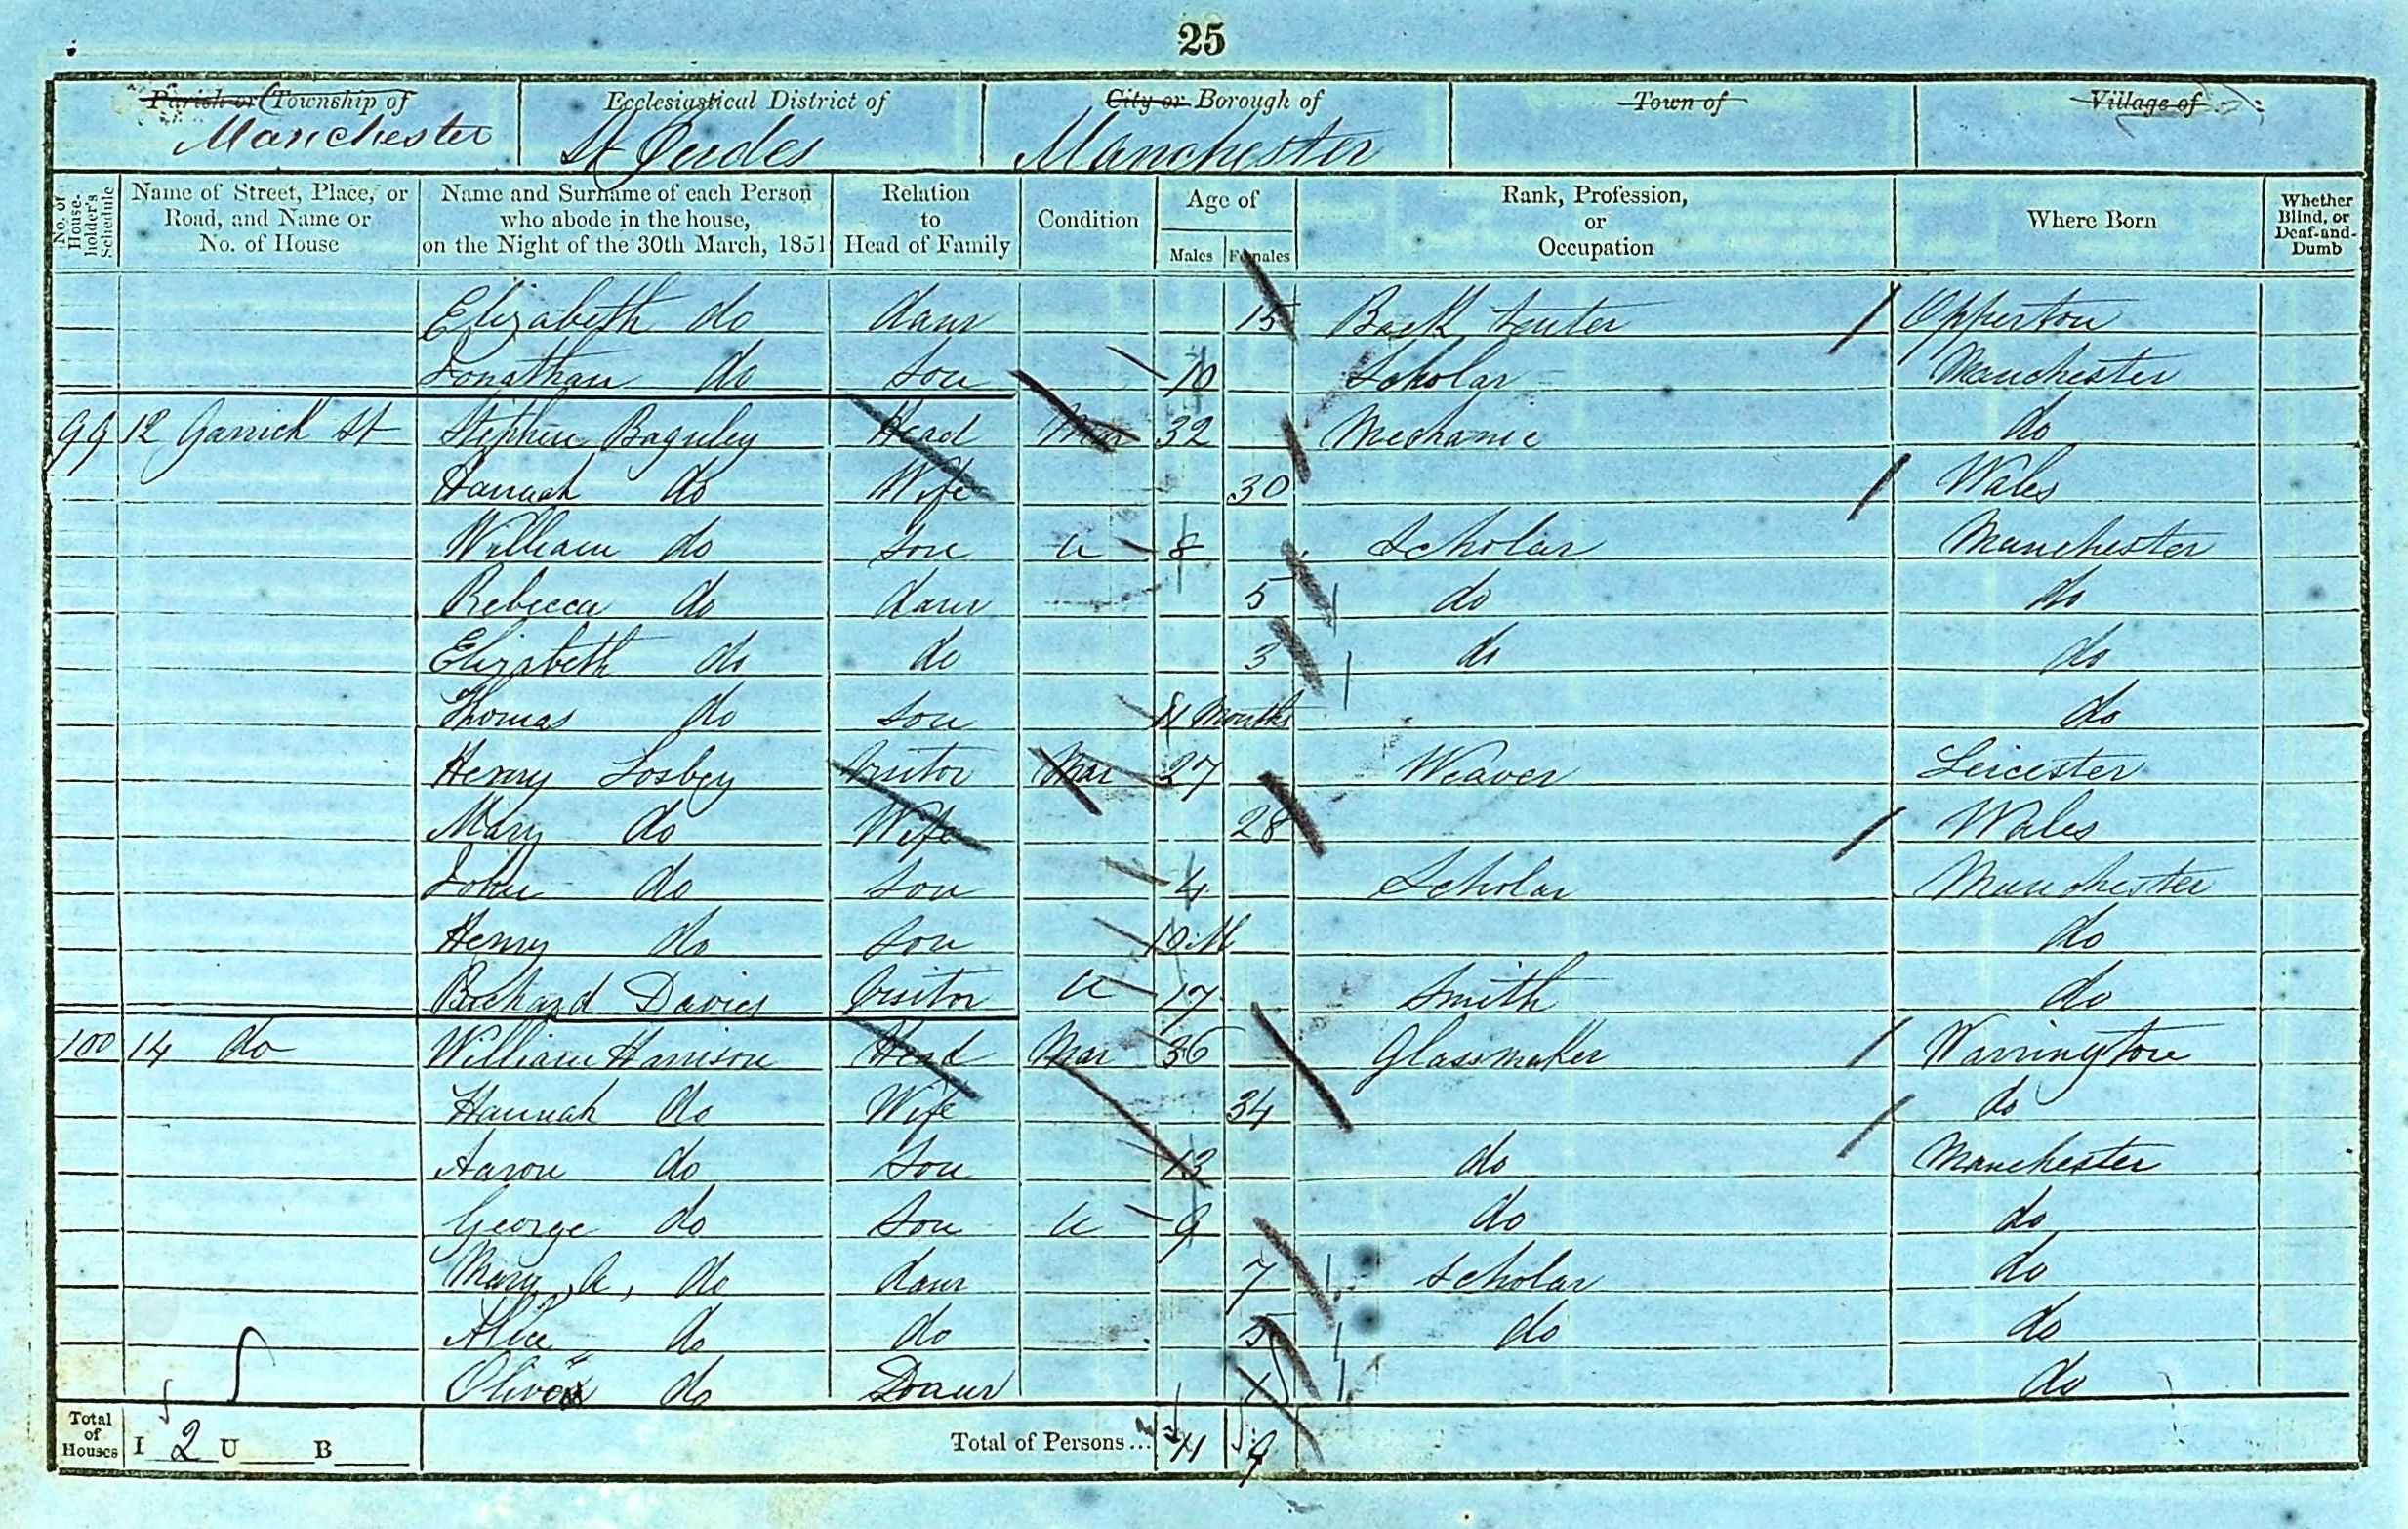 25
Parish or Township of Ecclesiastical District of City or Borough of Town of Village of
Manchester St Judes Manchester
No. of House-holder's Schedule Name of Street, Place, or Road, and Name or No. of House Name and Surname of each Person who abode in the house, on the Night of the 30th March, 1851 Relation to Head of Family Condition Age of Males Females Rank, Profession, or Occupation Where Born Whether Blind, or Deaf-and-Dumb
Elizabeth do daur 15 Back tenter Opperton
Jonathan do Son 10 Scholar Manchester
99 12 Garrick St Stephen Baguley Head Mar 32 Mechanic do
Hannah do Wife 30 Wales
William do Son U 8 Scholar Manchester
Rebecca do daur 5 do do
Elizabeth do do 3 do do
Thomas do Son 11 Months do
Henry Losbey Visitor Mar 27 Weaver Leicester
Mary do Wife 28 Wales
John do Son 4 Scholar Manchester
Henry do Son 10 M do
Richard Davies Visitor U 17 Smith do
100 14 do William Harrison Head Mar 36 Glassmaker Warrington
Hannah do Wife 34 do
Aaron do Son 13 do Manchester
George do Son U 9 do do
Mary A, do daur 7 Scholar do
Alice do do 5 do do
do Daur 1 do
Total of Houses I 2 U B Total of Persons... 11 9